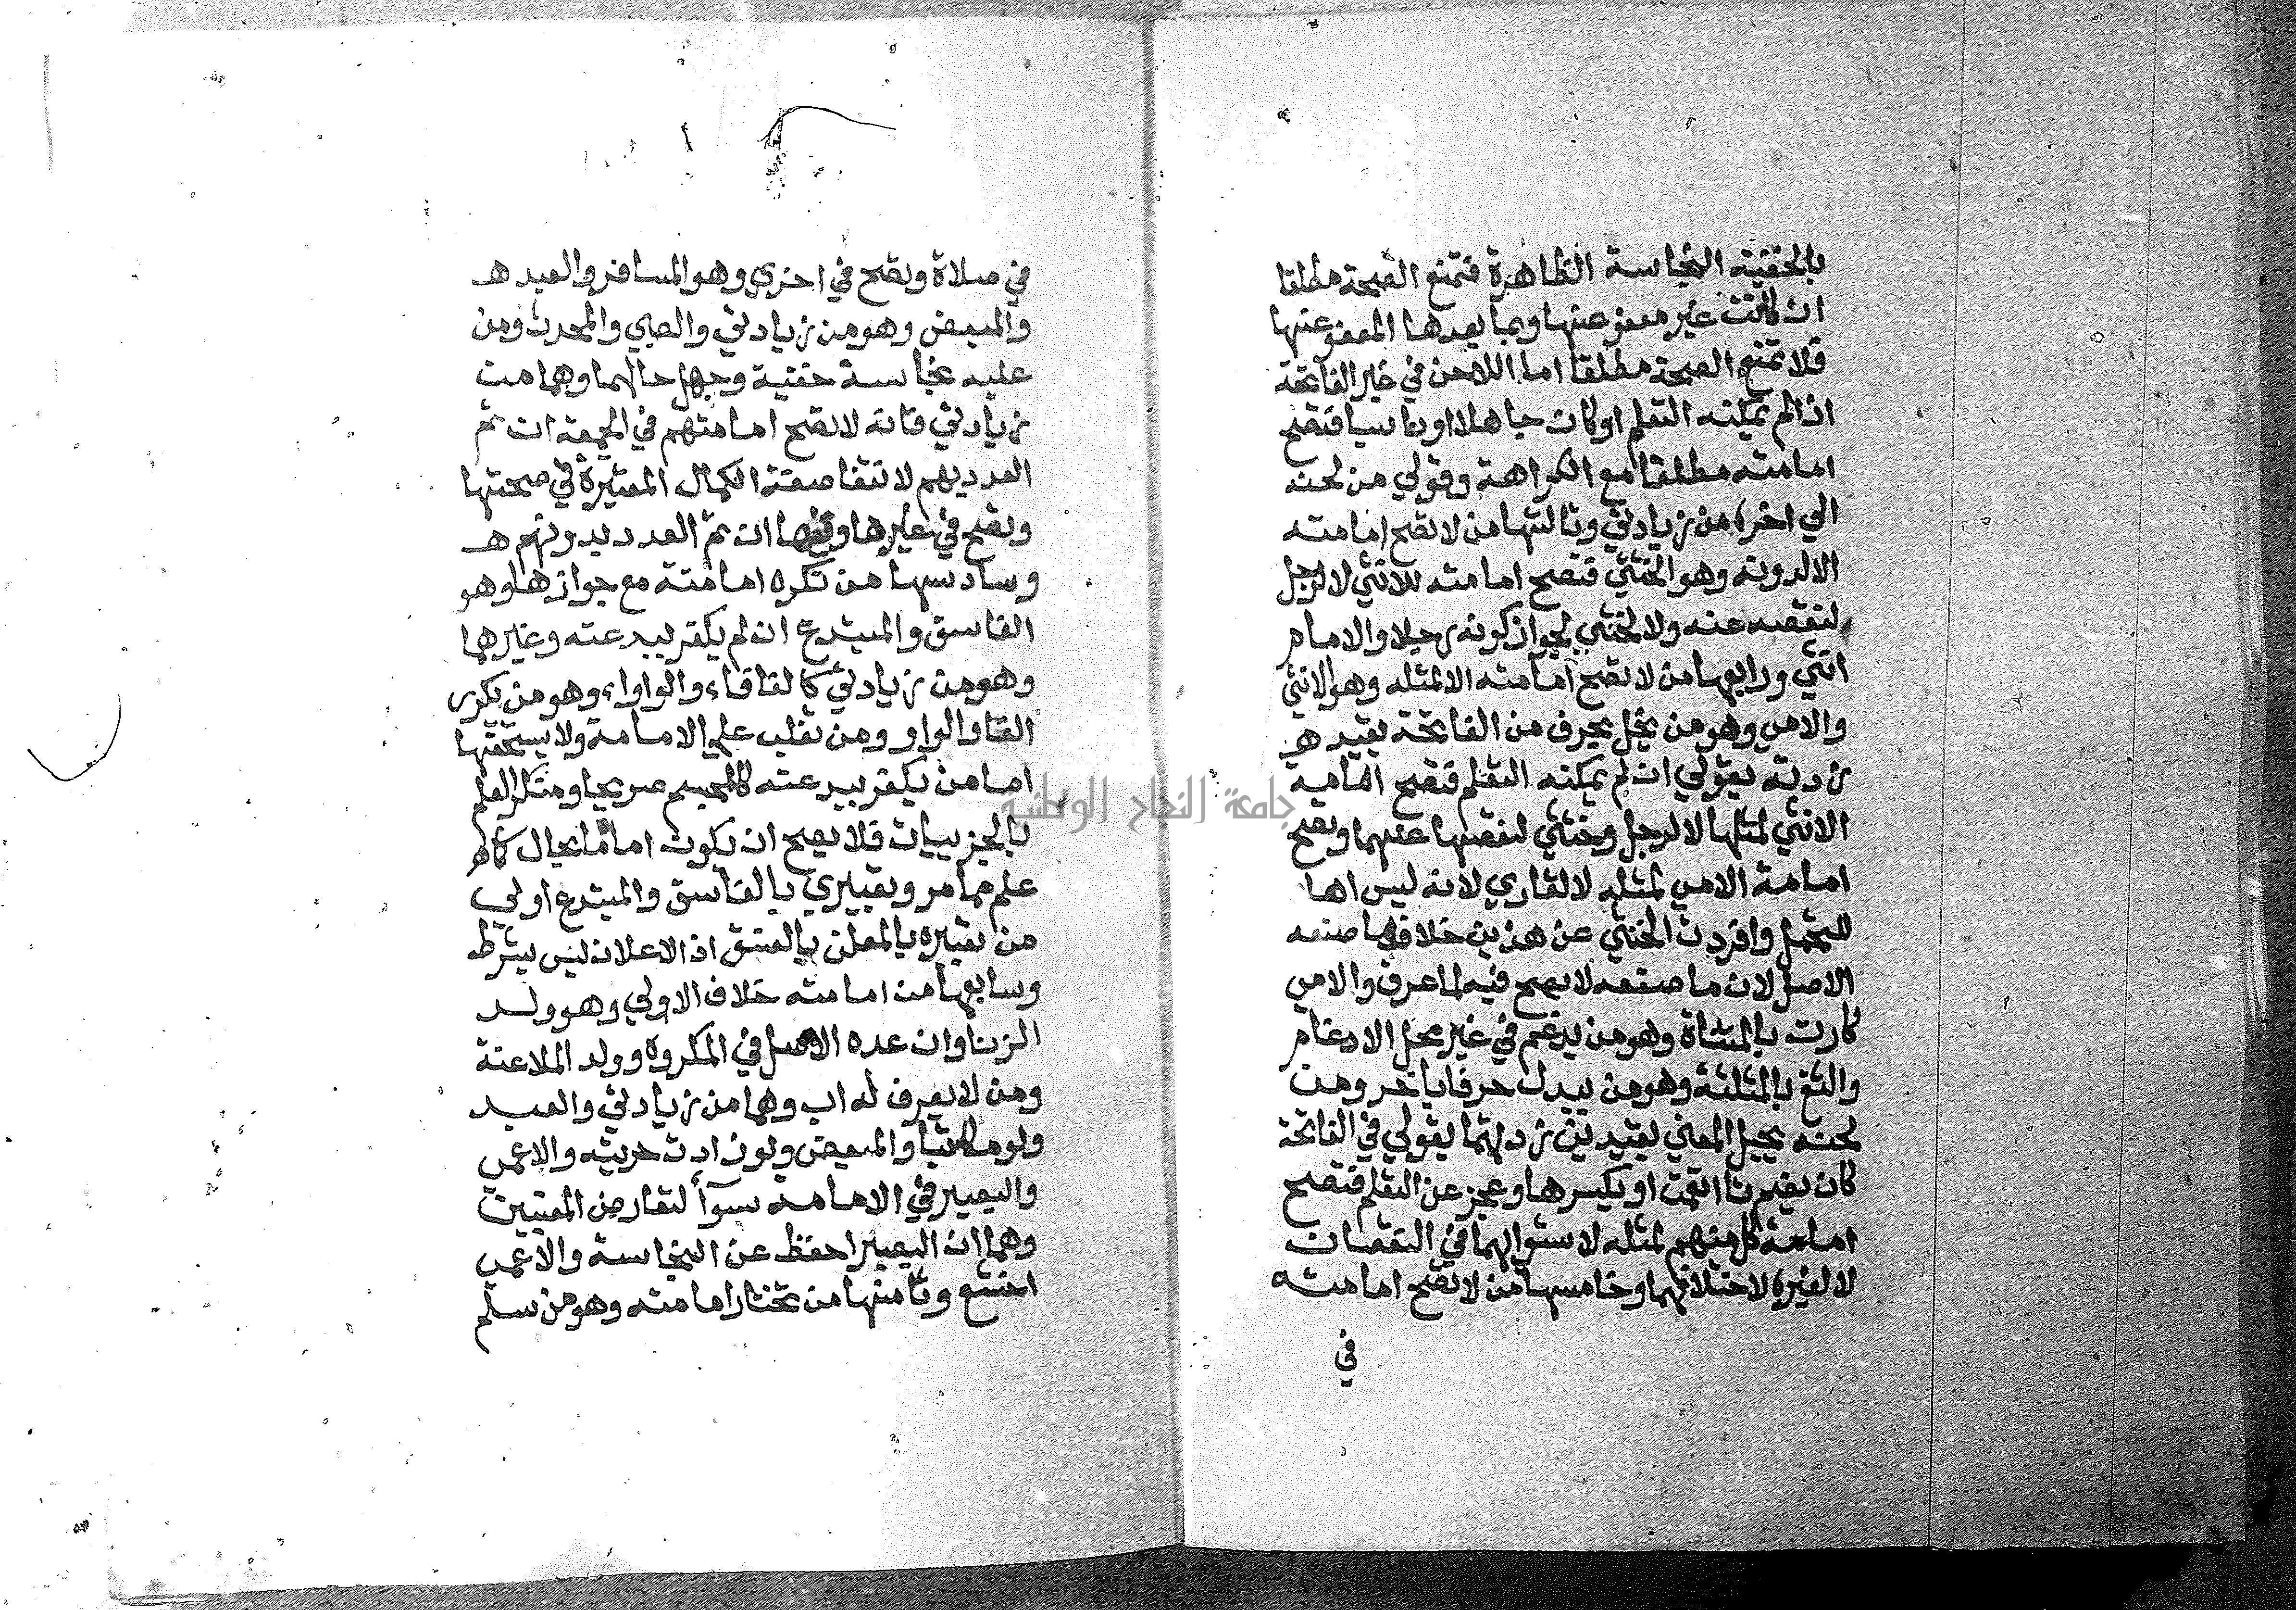 بالخفية النجاسة الظاهرة فتمنع الصحة مطلقا
ان كانت غير معفو عنها وبما بعدها المعفو عنها
فلا تمنع الصحة مطلقا اما اللاحن في غير الفاتحة
اذا لم يمكنه التعلم او كان جاهلا او ناسيا فتصح
امامته مطلقا مع الكراهة وقولي من لحنه
الي اخره من زيادتي وثالثها من لا تصح امامته
الا لدونه وهو الخنثي فتصح امامته للانثي لا لرجل
لنقصه عنه ولا لخنثي لجواز كونه رجلا والامام
انثي ورابعها من لا تصح امامته الا لمثله وهو الانثي
والامي وهو من يخل بحرف من الفاتحة بقيد
زدته بقولي ان لم يمكنه التعلم فتصح امامة
الانثي لمثلها لا لرجل وخنثي لنقصها عنهما وتصح
امامة الامي لمثله لا لقاري لانه ليس اهلا
للتحمل وافردت الخنثي عن هذين خلاف ما صنعه
الاصل لان ما صنعه لا يصح فيه لما عرف والامي
كارت بالمثناة وهو من يدغم في غير محل الادغام
والثغ بالمثلثة وهو من يبدل حرفا باخر ومن
لحنه يحيل المعني بقيدين زدتهما بقولي في الفاتحة
كان يضم تا انعمت او يكسرها وعجز عن التعلم فتصح
امامة كل منهم لمثله لاستوايهما في النقصان
لا لغيره لاختلافهما وخامسها من لا تصح امامته
في
في صلاة وتصح في اخري وهو المسافر والعبد
والمبعض وهو من زيادتي والصبي والمحدث ومن
عليه نجاسة خفية وجهل حالهما وهما من
زيادتي فانه لا تصح امامتهم في الجمعة ان تم
العدد بهم لانتفا صفة الكمال المعتبرة في صحتها
وتصح في غيرها وفيها ان تم العدد بدونهم
وسادسها من تكره امامته مع جوازها وهو
الفاسق والمبتدع ان لم يكفر ببدعته وغيرهما
وهو من زيادتي كالفافاء والواواء وهو من يكرر
الفا والواو ومن تغلب علي الامامة ولا يستحقها
اما من يكفر ببدعته كالمجسم صريحا ومنكر العلم
بالجزييات فلا يصح ان يكون اماما بحال كما
علم مما مر وتعبيري بالفاسق والمبتدع اولي
من تعبيره بالمعلن بالفسق اذ الاعلان ليس بشرط
وسابعها من امامته خلاف الاولي وهو ولد
الزنا وان عده الاصل في المكروه وولد الملاعنة
ومن لا يعرف له اب وهما من زيادتي والعبد
ولو مكاتبا والمبعض ولو زادت حريته والاعمي
والبصير في الامامة سوآأ لتعارض المعنيين
وهما ان البصير احفظ عن النجاسة والاعمي
اخشع وثامنها من تختار امامته وهو من سلم
جامعة النجاح الوطنية